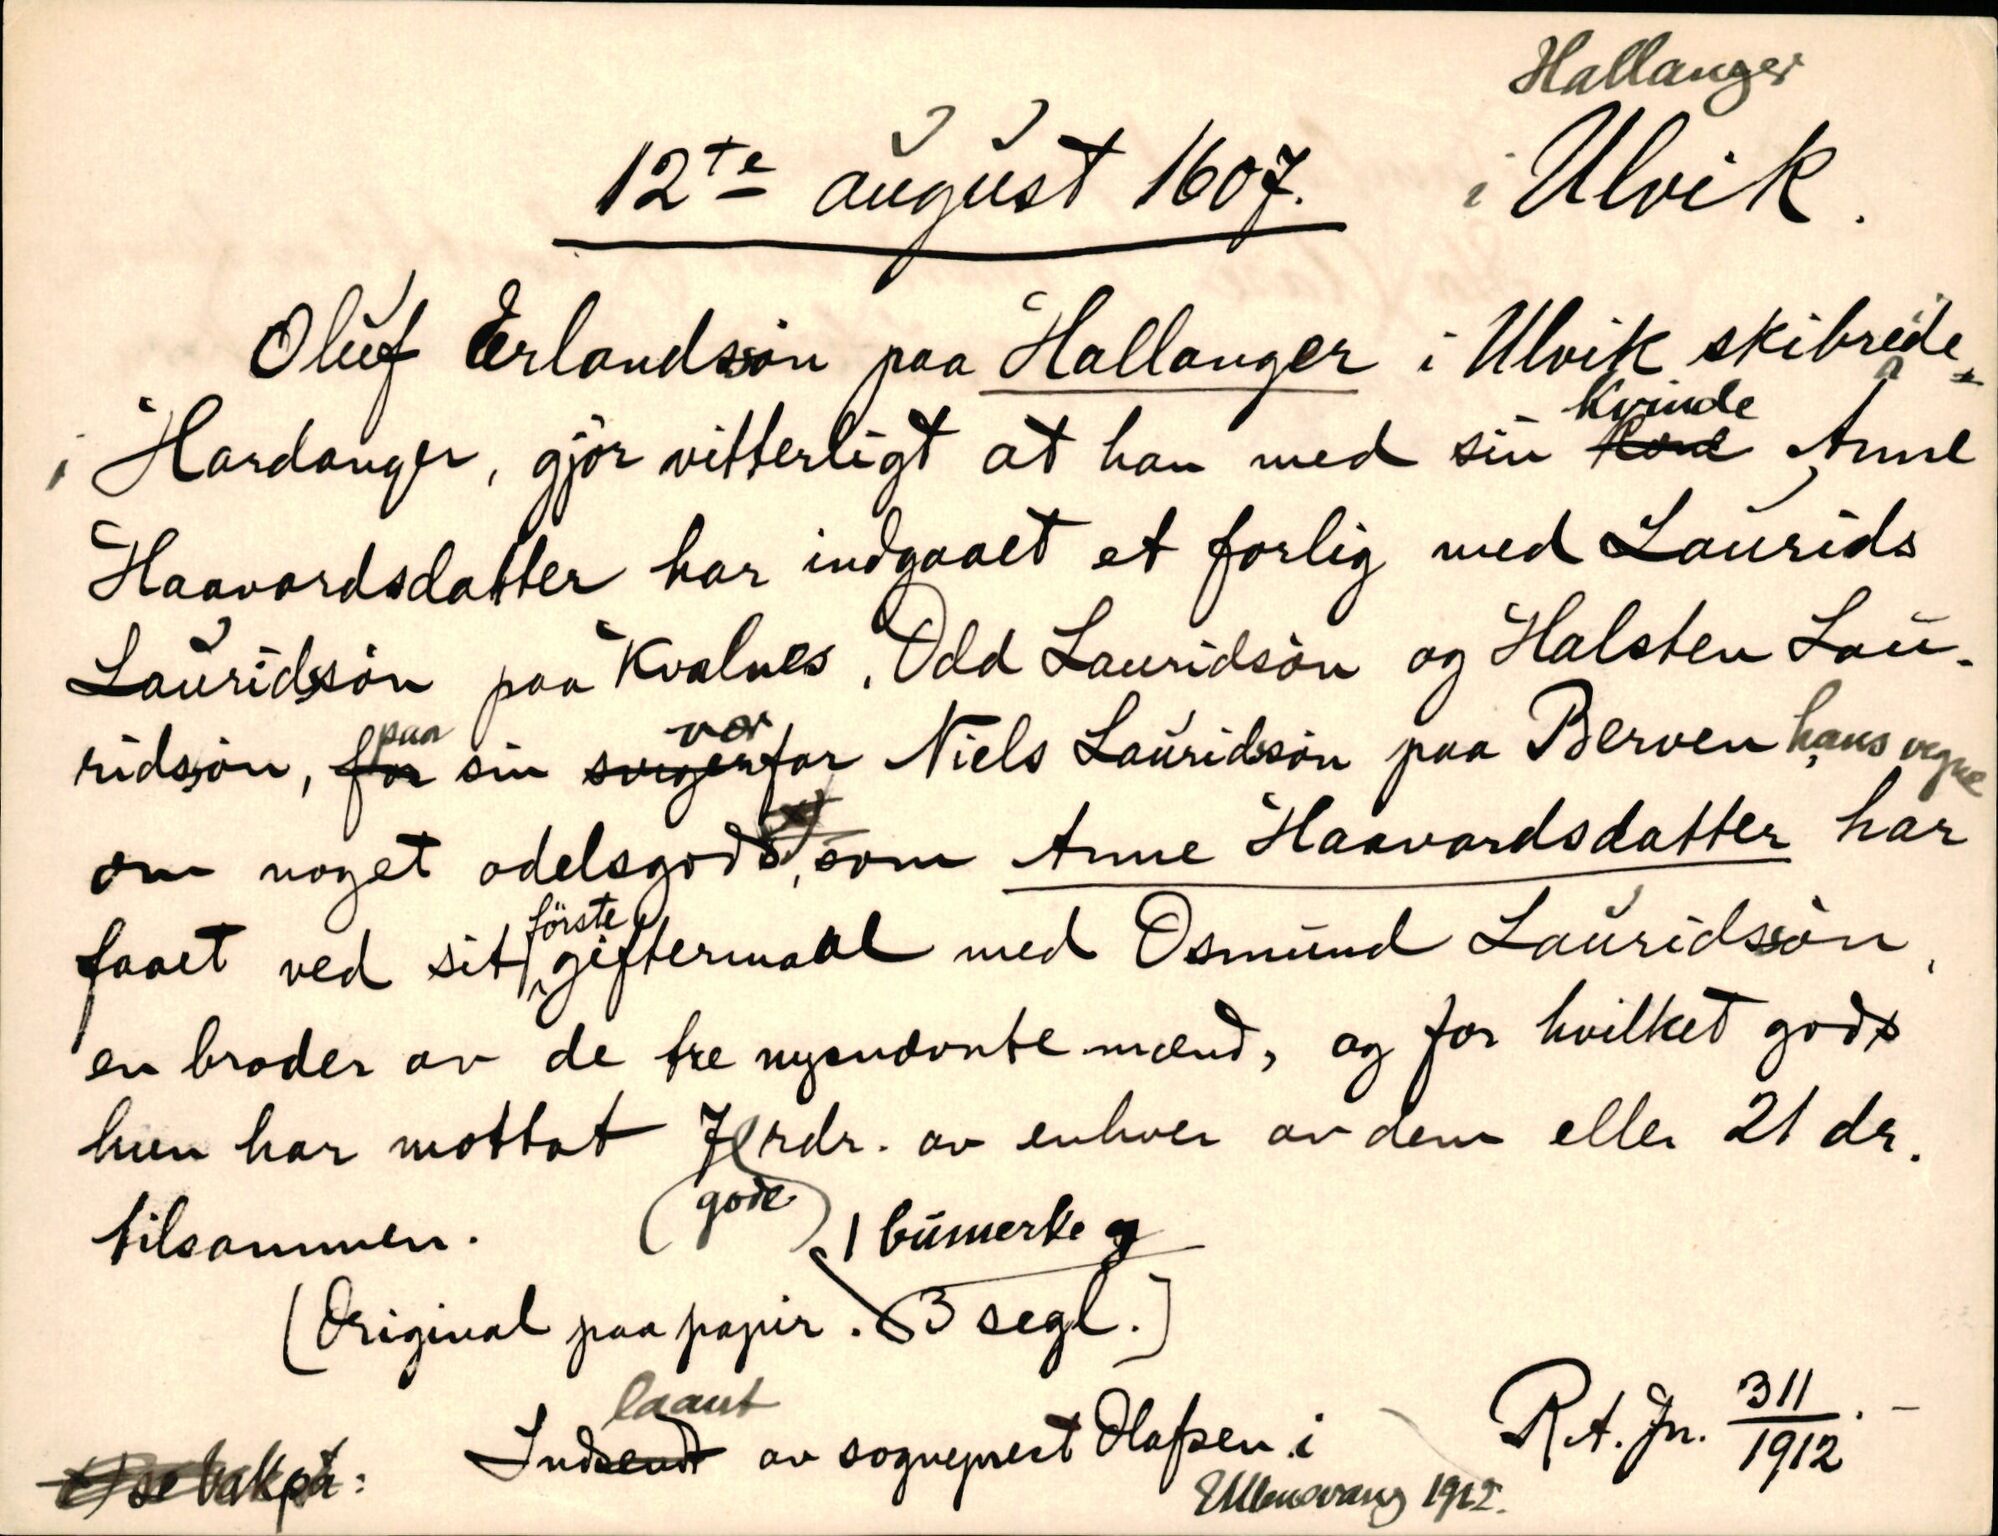 Hallanger
12te august 1607. i Ulvik.
Oluf Erlandssøn paa Hallanger i Ulvik skibrede
i Hardanger, gjør vitterligt at han med sin kone Kvinde Anne
Haavardsdatter har indgaaet et forlig med Laurids
Lauridssøn paa Kvalnes, Odd Lauridsøn og Halsten Lau-
ridsøn, for paa sin svigerfar ver Niels Lauridsøn paa Berven hans vegne
om noget odelsgods, som Anne Haavardsdatter har
faaet ved sit første giftermaal med Osmund Lauridssøn,
en broder av de tre nysnævnte mænd, og for hvilket gods
hun har mottat 7 rdr. av enhver av dem eller 21 dr.
(gode)
tilsammen.
1 bumerke og
(Original paa papir. 3 segl.)
laant
Indsendt av sogneprest Olafsen i
Ullensvang 1912.
R.A. Jn. 311/1912.
x) se bakpå: